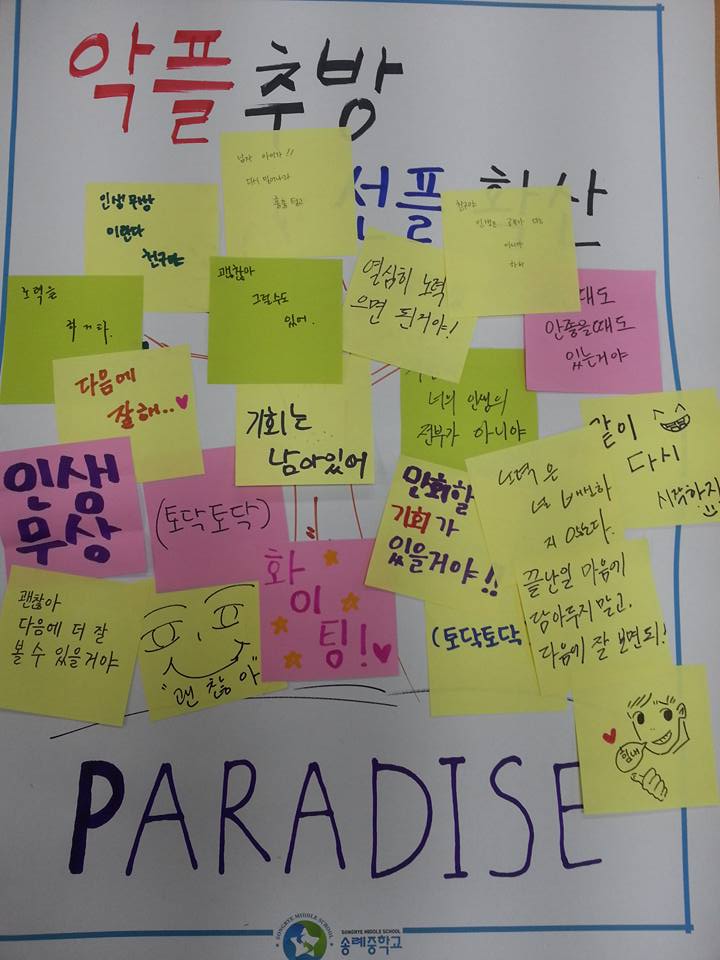 악플추방
선플확산
넘자 아이가!!
다시 일어나라
훌훌 털고
인생무상
이란다
친구야
친구야
인생은 공부가 다는
아니야
하하
노력을
하거라.
괜찮아
그럴수도
있어.
열심히 노력
으면 된거야!
때도
안좋을때도
있는거야
다음에
잘해..♥
기회는
남아있어
너의 인생의
전부가 아니야
같이
다시
시작하자
인생
무상
(토닥토닥)
만회할
기회가
있을거야!!
노력은
널 배반하
지 않는다.
괜찮아
다음에 더 잘
볼 수 있을거야
"괜찮아"
화
이
팅!♥
(토닥토닥
끝난일 마음에
담아두지 말고,
다음에 잘 보면 되!
힘내
PARADISE
SONGRYE MIDDLE SCHOOL
SONGRYE MIDDLE SCHOOL
송례중학교